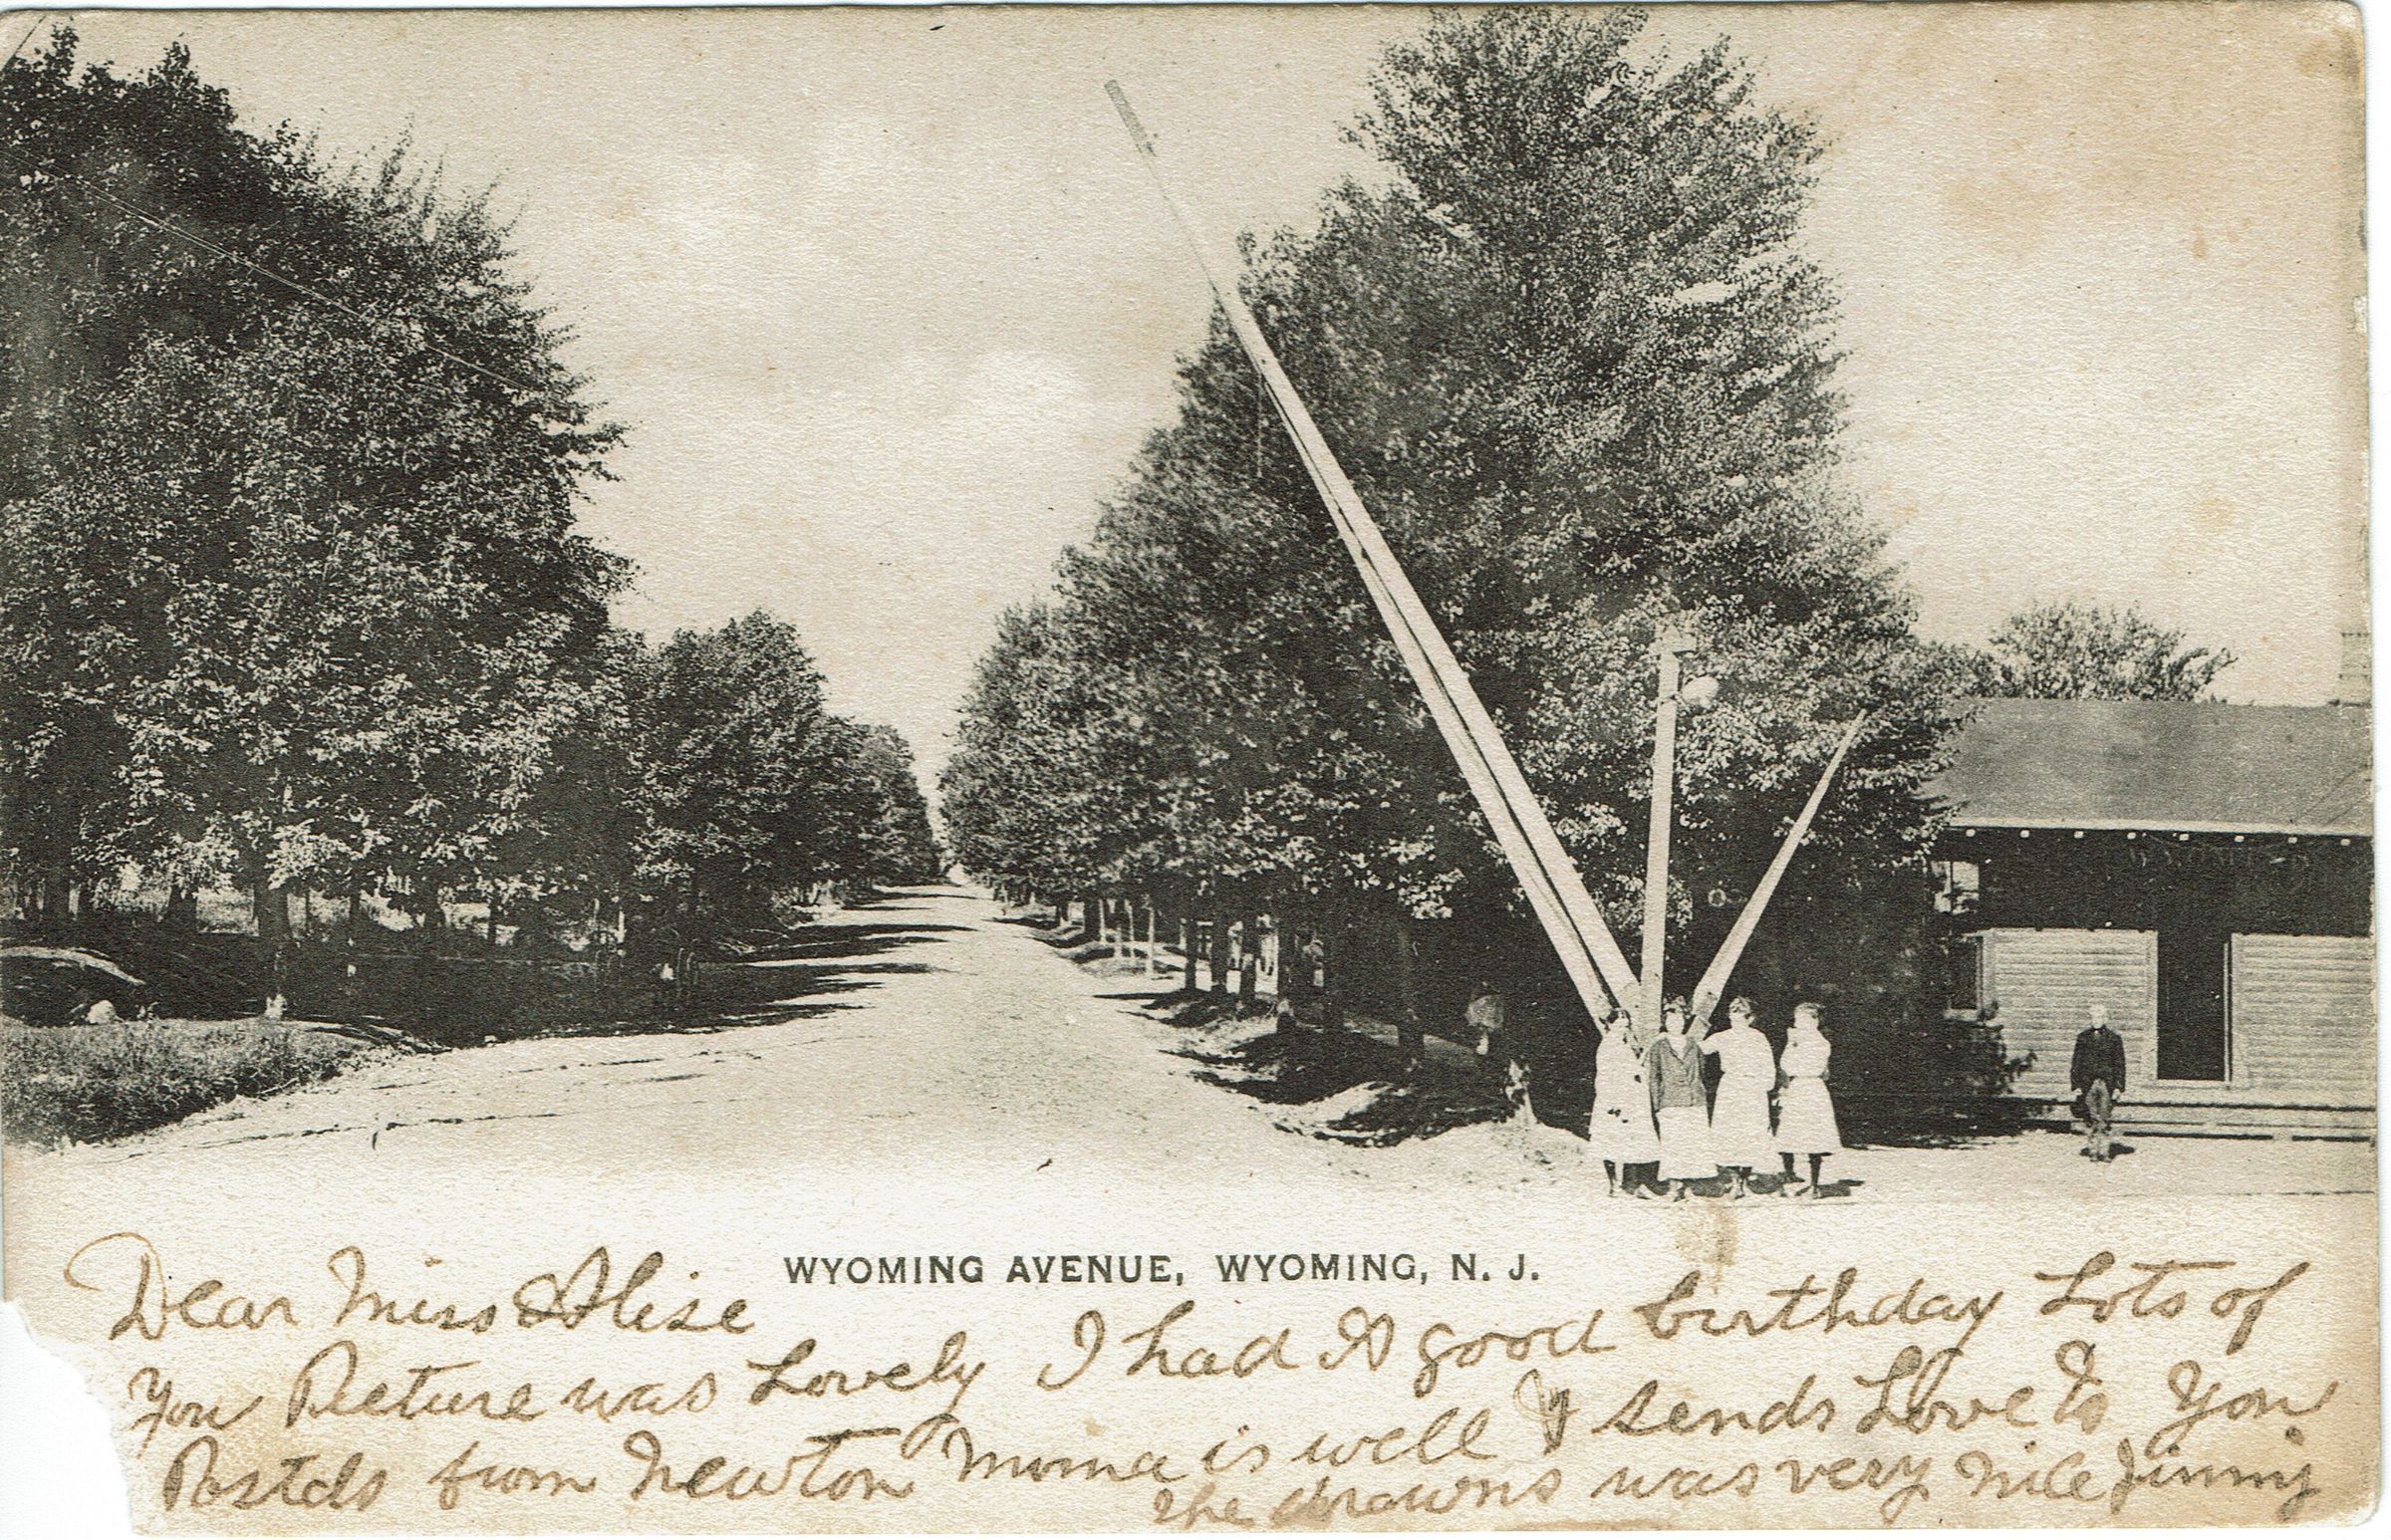 WYOMING
WYOMING AVENUE, WYOMING, N. J.
Dear Miss Alise
You Picture was Lovely I had A good birthday Lots of
Postels from Newton Moma is well & sends Love to You
the drawns was very nice Jinny